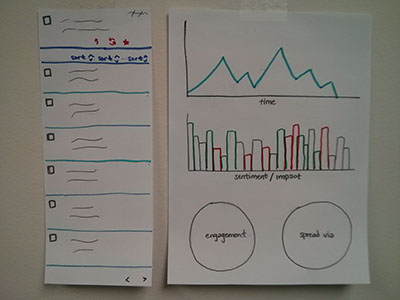 sort sort sort
time
sentiment / impact
engagement
spread via